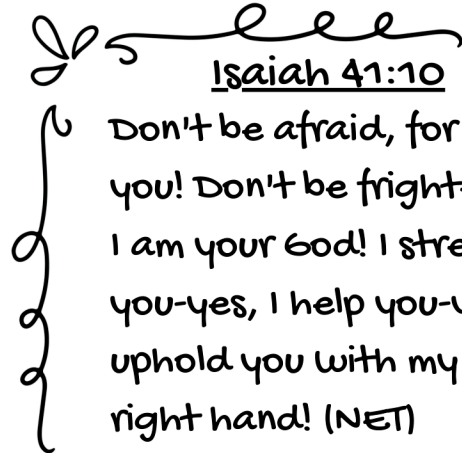 Isaiah 41:10
Don't be afraid, for
you! Don't be fright
I am your God! I stre
you-yes, I help you-
uphold you with my
right hand! (NET)